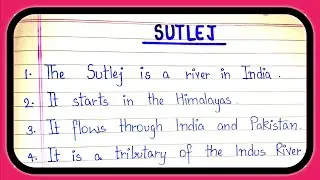 SUTLEJ
1. The Sutlej is a river in India.
2. It starts in the Himalayas.
3. It flows through India and Pakistan.
4. It is a tributary of the Indus River